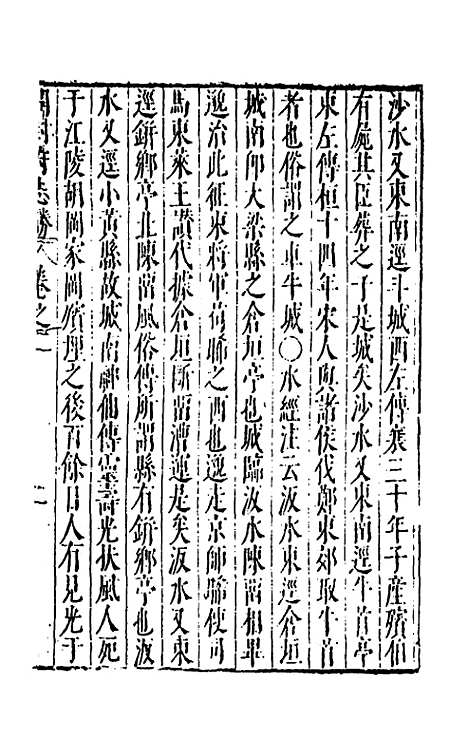 沙水又東南逕斗城西左傳襄三十年子產殯伯
有屍其臣葬之于是城矣沙水又東南逕牛首亭
東左傳桓十四年宋人與諸侯伐鄭東郊取牛首
者也俗謂之車牛城○水經注云汳水東逕倉垣
城南即大梁縣之倉垣亭也城臨汳水陳留相畢
邈治此征東將軍苟晞之西也邈走京師晞使司
馬東萊王讚代據倉垣斷留漕運是矣汳水又東
逕鉼鄉亭北陳留風俗傳所謂縣有鉼鄉亭也汳
水又逕小黃縣故城南神仙傳靈壽光扶風人死
于江陵胡岡家岡殯埋之後百餘日人有見光于
志勝 卷之一